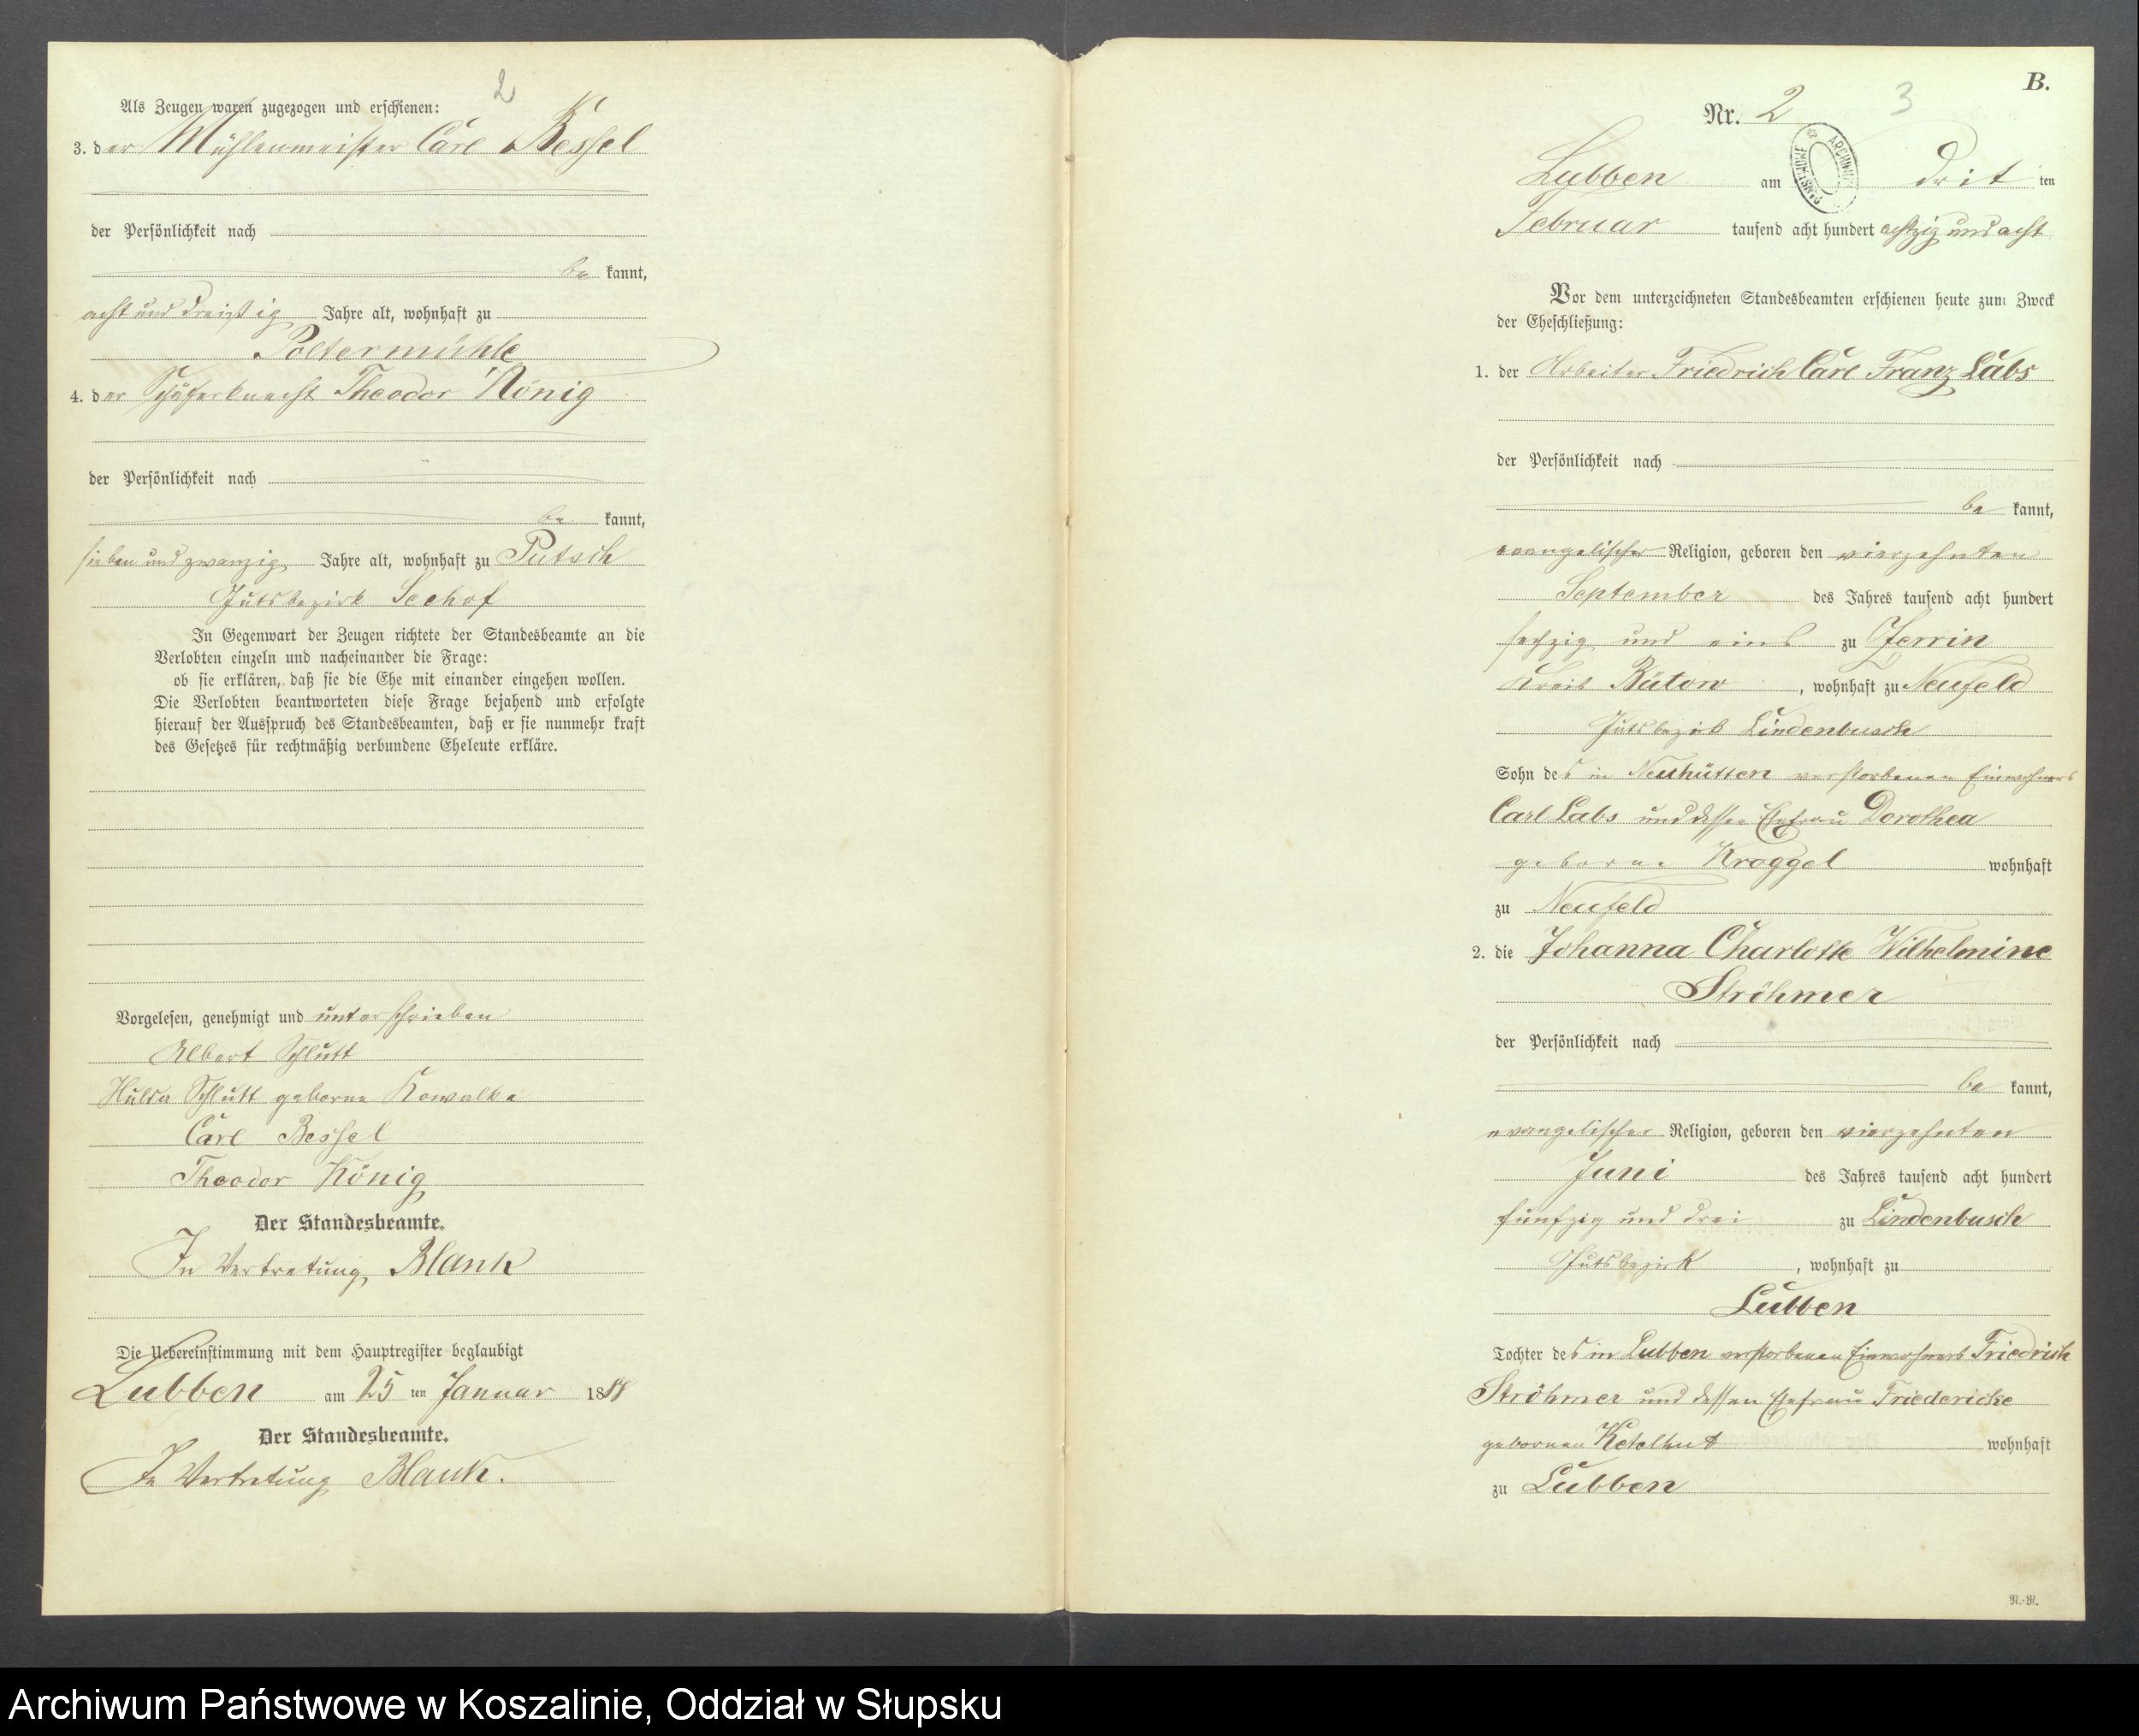 2
Als Zeugen waren zugezogen und erschienen:
3. der Mühlenmeister Carl Bessel
der Persönlichkeit nach
be kannt,
acht und dreißig Jahre alt, wohnhaft zu
Poltermühle
4. der Schäferknecht Theodor König
der Persönlichkeit nach
be kannt,
sieben und zwanzig Jahre alt, wohnhaft zu Putsch
Gutsbezirk Seehof
In Gegenwart der Zeugen richtete der Standesbeamte an die
Verlobten einzeln und nacheinander die Frage:
ob sie erklären, daß sie die Ehe mit einander eingehen wollen.
Die Verlobten beantworteten diese Frage bejahend und erfolgte
hierauf der Ausspruch des Standesbeamten, daß er sie nunmehr kraft
des Gesetzes für rechtmäßig verbundene Eheleute erkläre.
Vorgelesen, genehmigt und unterschrieben
Albert Schlutt
Hulda Schlutt geborne Kowalke
Carl Bessel
Theodor König
Der Standesbeamte.
In Vertretung Blank
Die Uebereinstimmung mit dem Hauptregister beglaubigt
Lubben am 25 ten Januar 1888
Der Standesbeamte.
In Vertretung Blank.
B.
Nr. 2 3
ARCHIWUM PAŃSTWOWE
Lubben am drit ten
Februar tausend acht hundert achtzig und acht
Vor dem unterzeichneten Standesbeamten erschienen heute zum Zweck
der Eheschließung:
1. der Arbeiter Friedrich Carl Franz Labs
der Persönlichkeit nach
be kannt,
evangelischer Religion, geboren den vierzehnten
September des Jahres tausend acht hundert
sechzig und eins zu Zerrin
Kreis Bütow, wohnhaft zu Neufeld
Gutsbezirk Lindenbusch
Sohn des in Neuhütten verstorbenen Einwohners
Carl Labs und dessen Ehefrau Dorothea
geborne Kroggel wohnhaft
zu Neufeld
2. die Johanna Charlotte Wilhelmine
Ströhmer
der Persönlichkeit nach
be kannt,
evangelischer Religion, geboren den vierzehnten
Juni des Jahres tausend acht hundert
fünfzig und drei zu Lindenbusch
Gutsbezirk, wohnhaft zu
Lubben
Tochter des in Lubben verstorbenen Einwohners Friedrich
Ströhmer und dessen Ehefrau Friedericke
gebornen Ketelhut wohnhaft
zu Lubben
N.-R.
Archiwum Państwowe w Koszalinie, Oddział w Słupsku